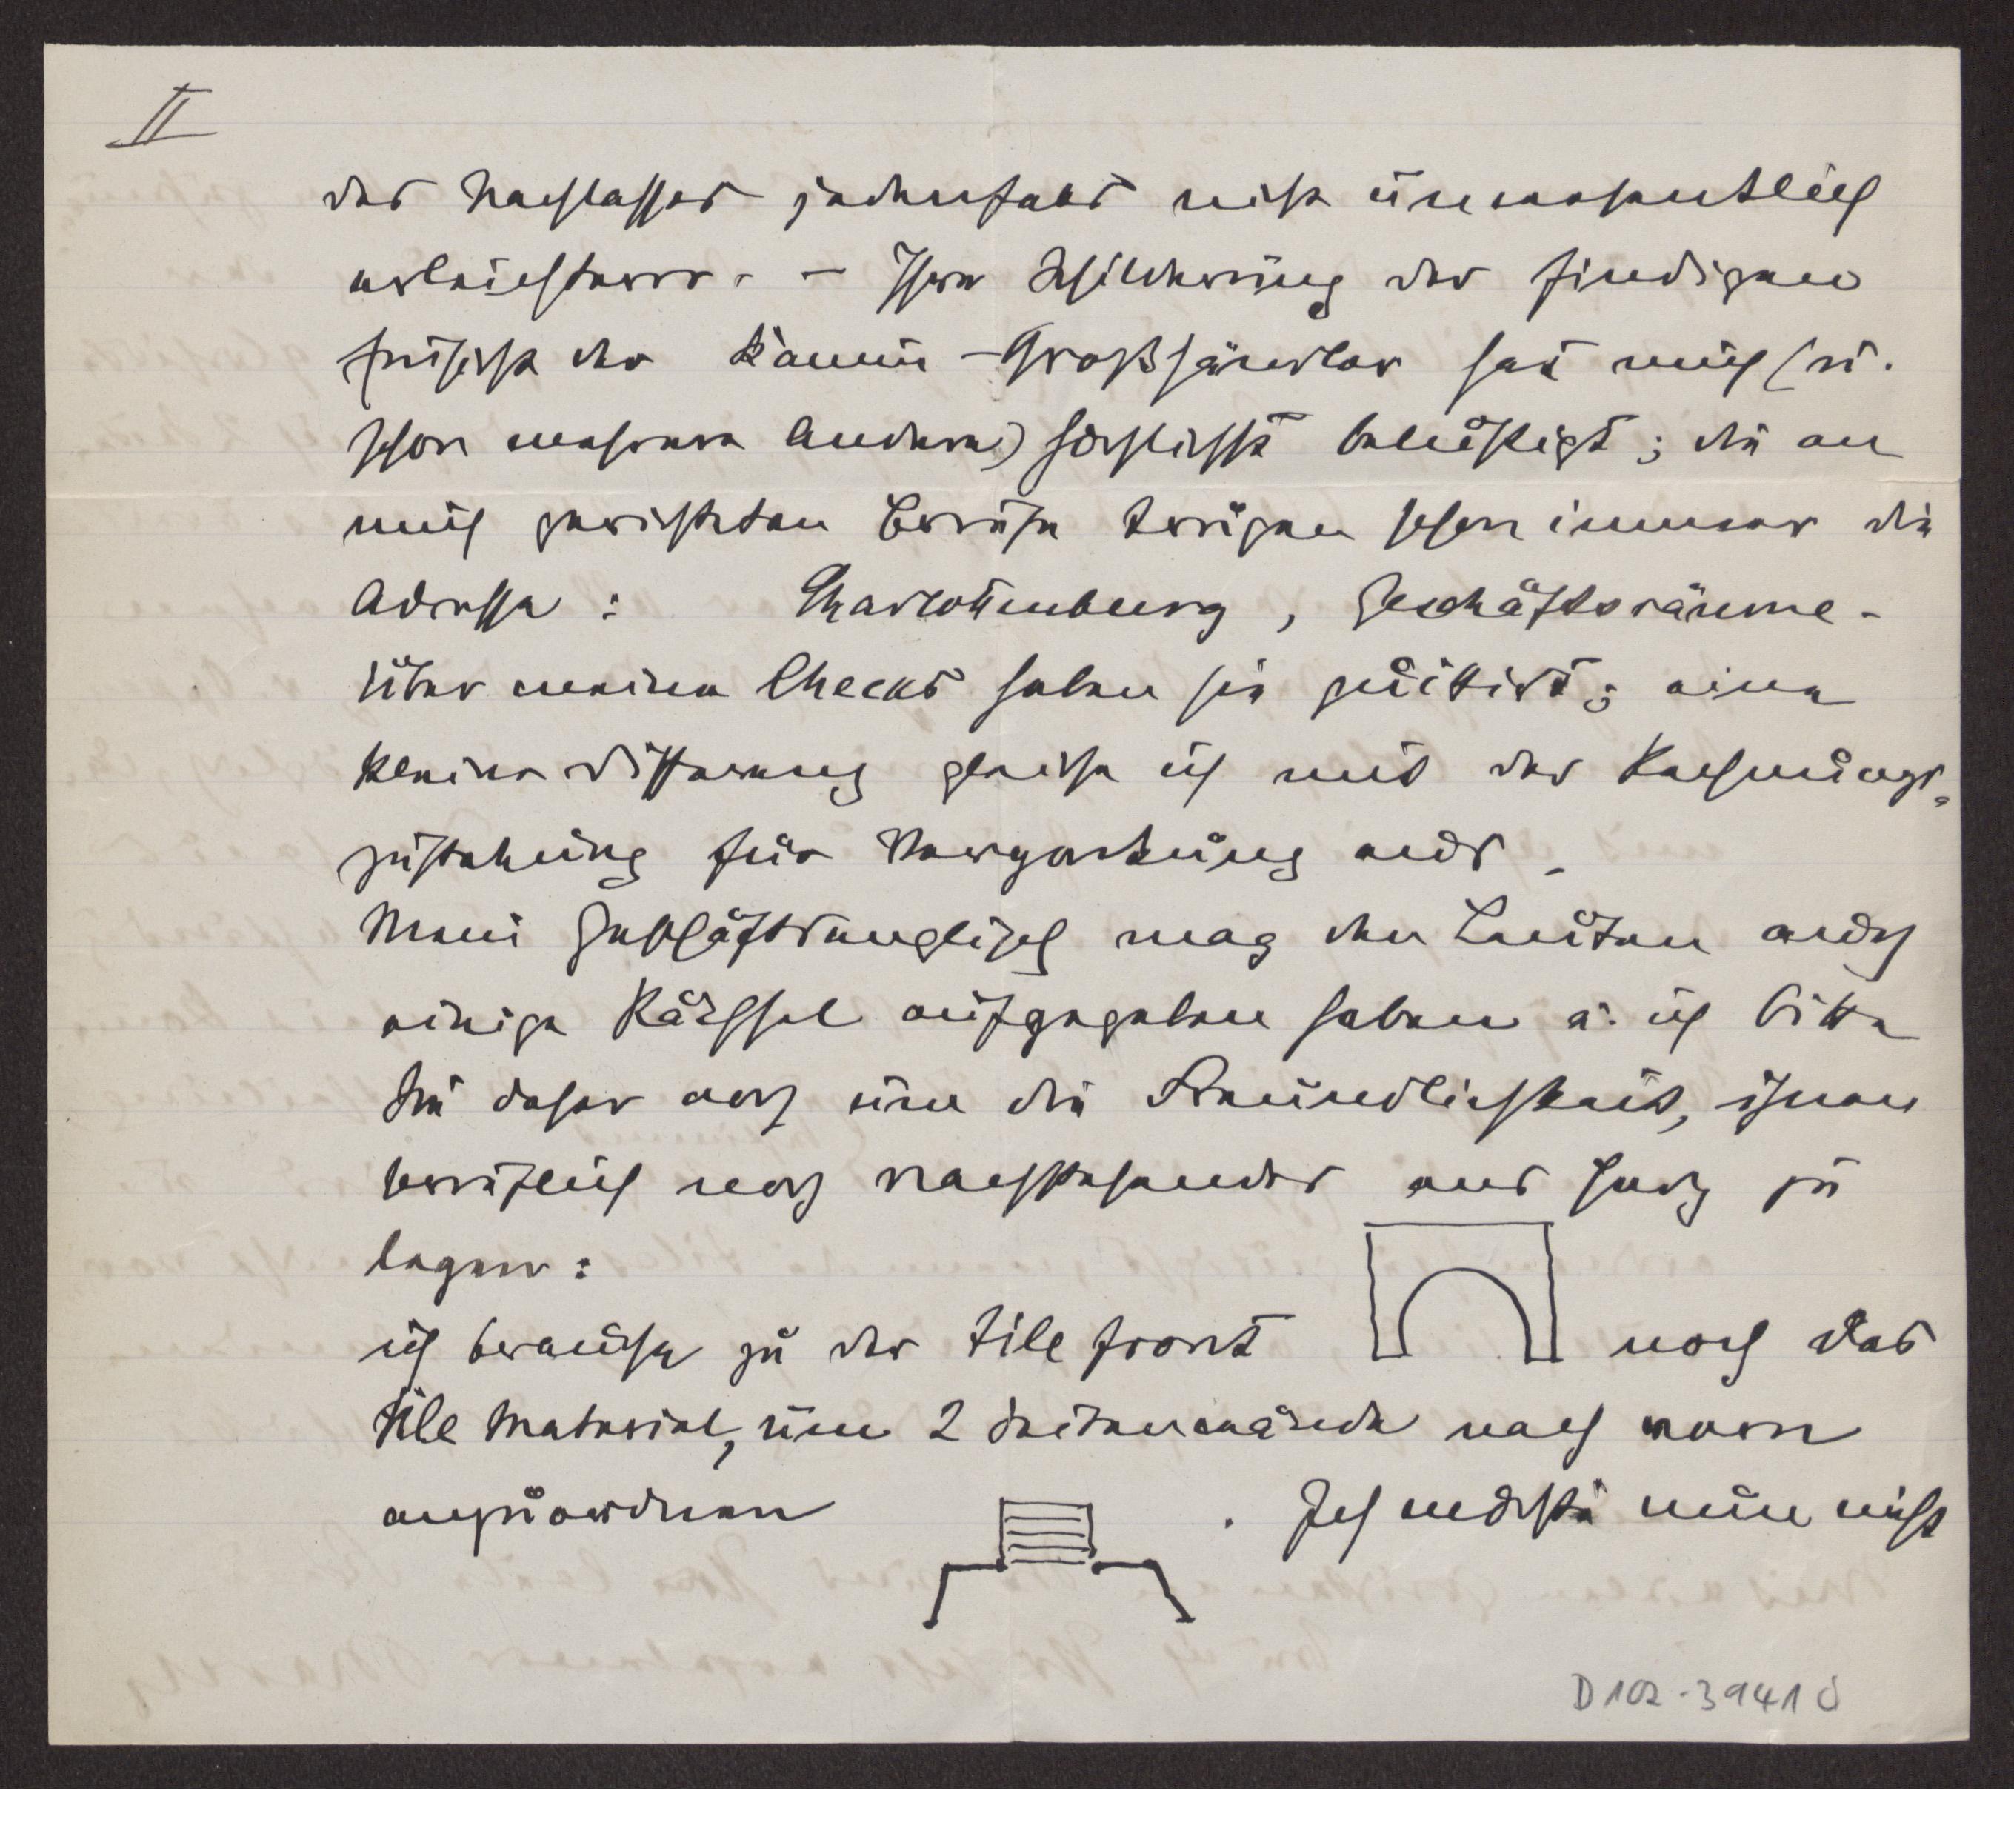 II
des Nachlasses jedenfalls nicht unwesentlich
erleichtern. – Ihre Schilderung der findigen
der Kamin-Großhändler hat mich (u.
schon mehrere Andere) höchlichst belustigt; die an
mich gerichteten Briefe trugen schon immer die
Adresse: Charlottenburg, Geschäftsräume.
Über meine Checks haben sie quittirt; eine
kleine Differenz gleiche ich mit der Rechnungs-
zustellung für Verpackung aus.
Mein Geschäftsenglisch mag den Leuten auch
einige Räthsel aufgegeben haben u. ich bitte
Sie daher noch um die Freundlichkeit, ihnen
brieflich noch nachstehendes ans Herz zu
legen:
ich brauche zu der tile front noch das
tile Material, um 2 Seitenwände nach vorn
anzuordnen . Ich möchte nun nicht
D102-3941 ü